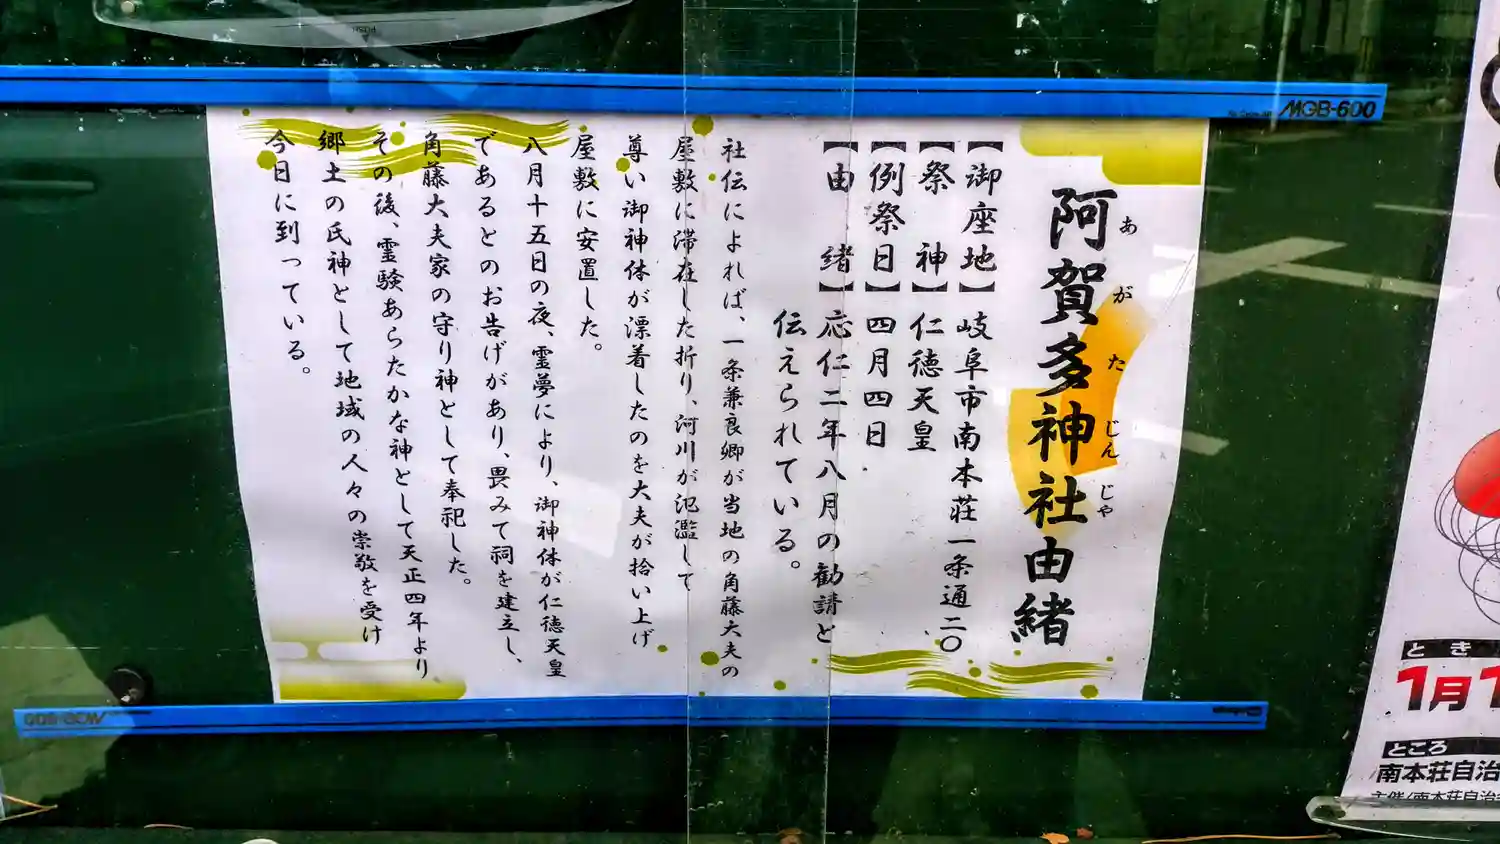 MGB-600
阿賀多神社由緒
あがたじんじゃ
【御座地】岐阜市南本荘一条通二〇
【祭神】仁徳天皇
【例祭日】四月四日
【由緒】応仁二年八月の勧請と
伝えられている。
社伝によれば、一条兼良卿が当地の角藤大夫の
屋敷に滞在した折り、河川が氾濫して
尊い御神体が漂着したのを大夫が拾い上げ
屋敷に安置した。
八月十五日の夜、霊夢により、御神体が仁徳天皇
であるとのお告げがあり、畏みて祠を建立し、
角藤大夫家の守り神として奉祀した。
その後、霊験あらたかな神として天正四年より
郷土の氏神として地域の人々の崇敬を受け
今日に到っている。
MGB-600
とき
1月1
ところ
南本荘自治
主催/南本荘自治
PUSH